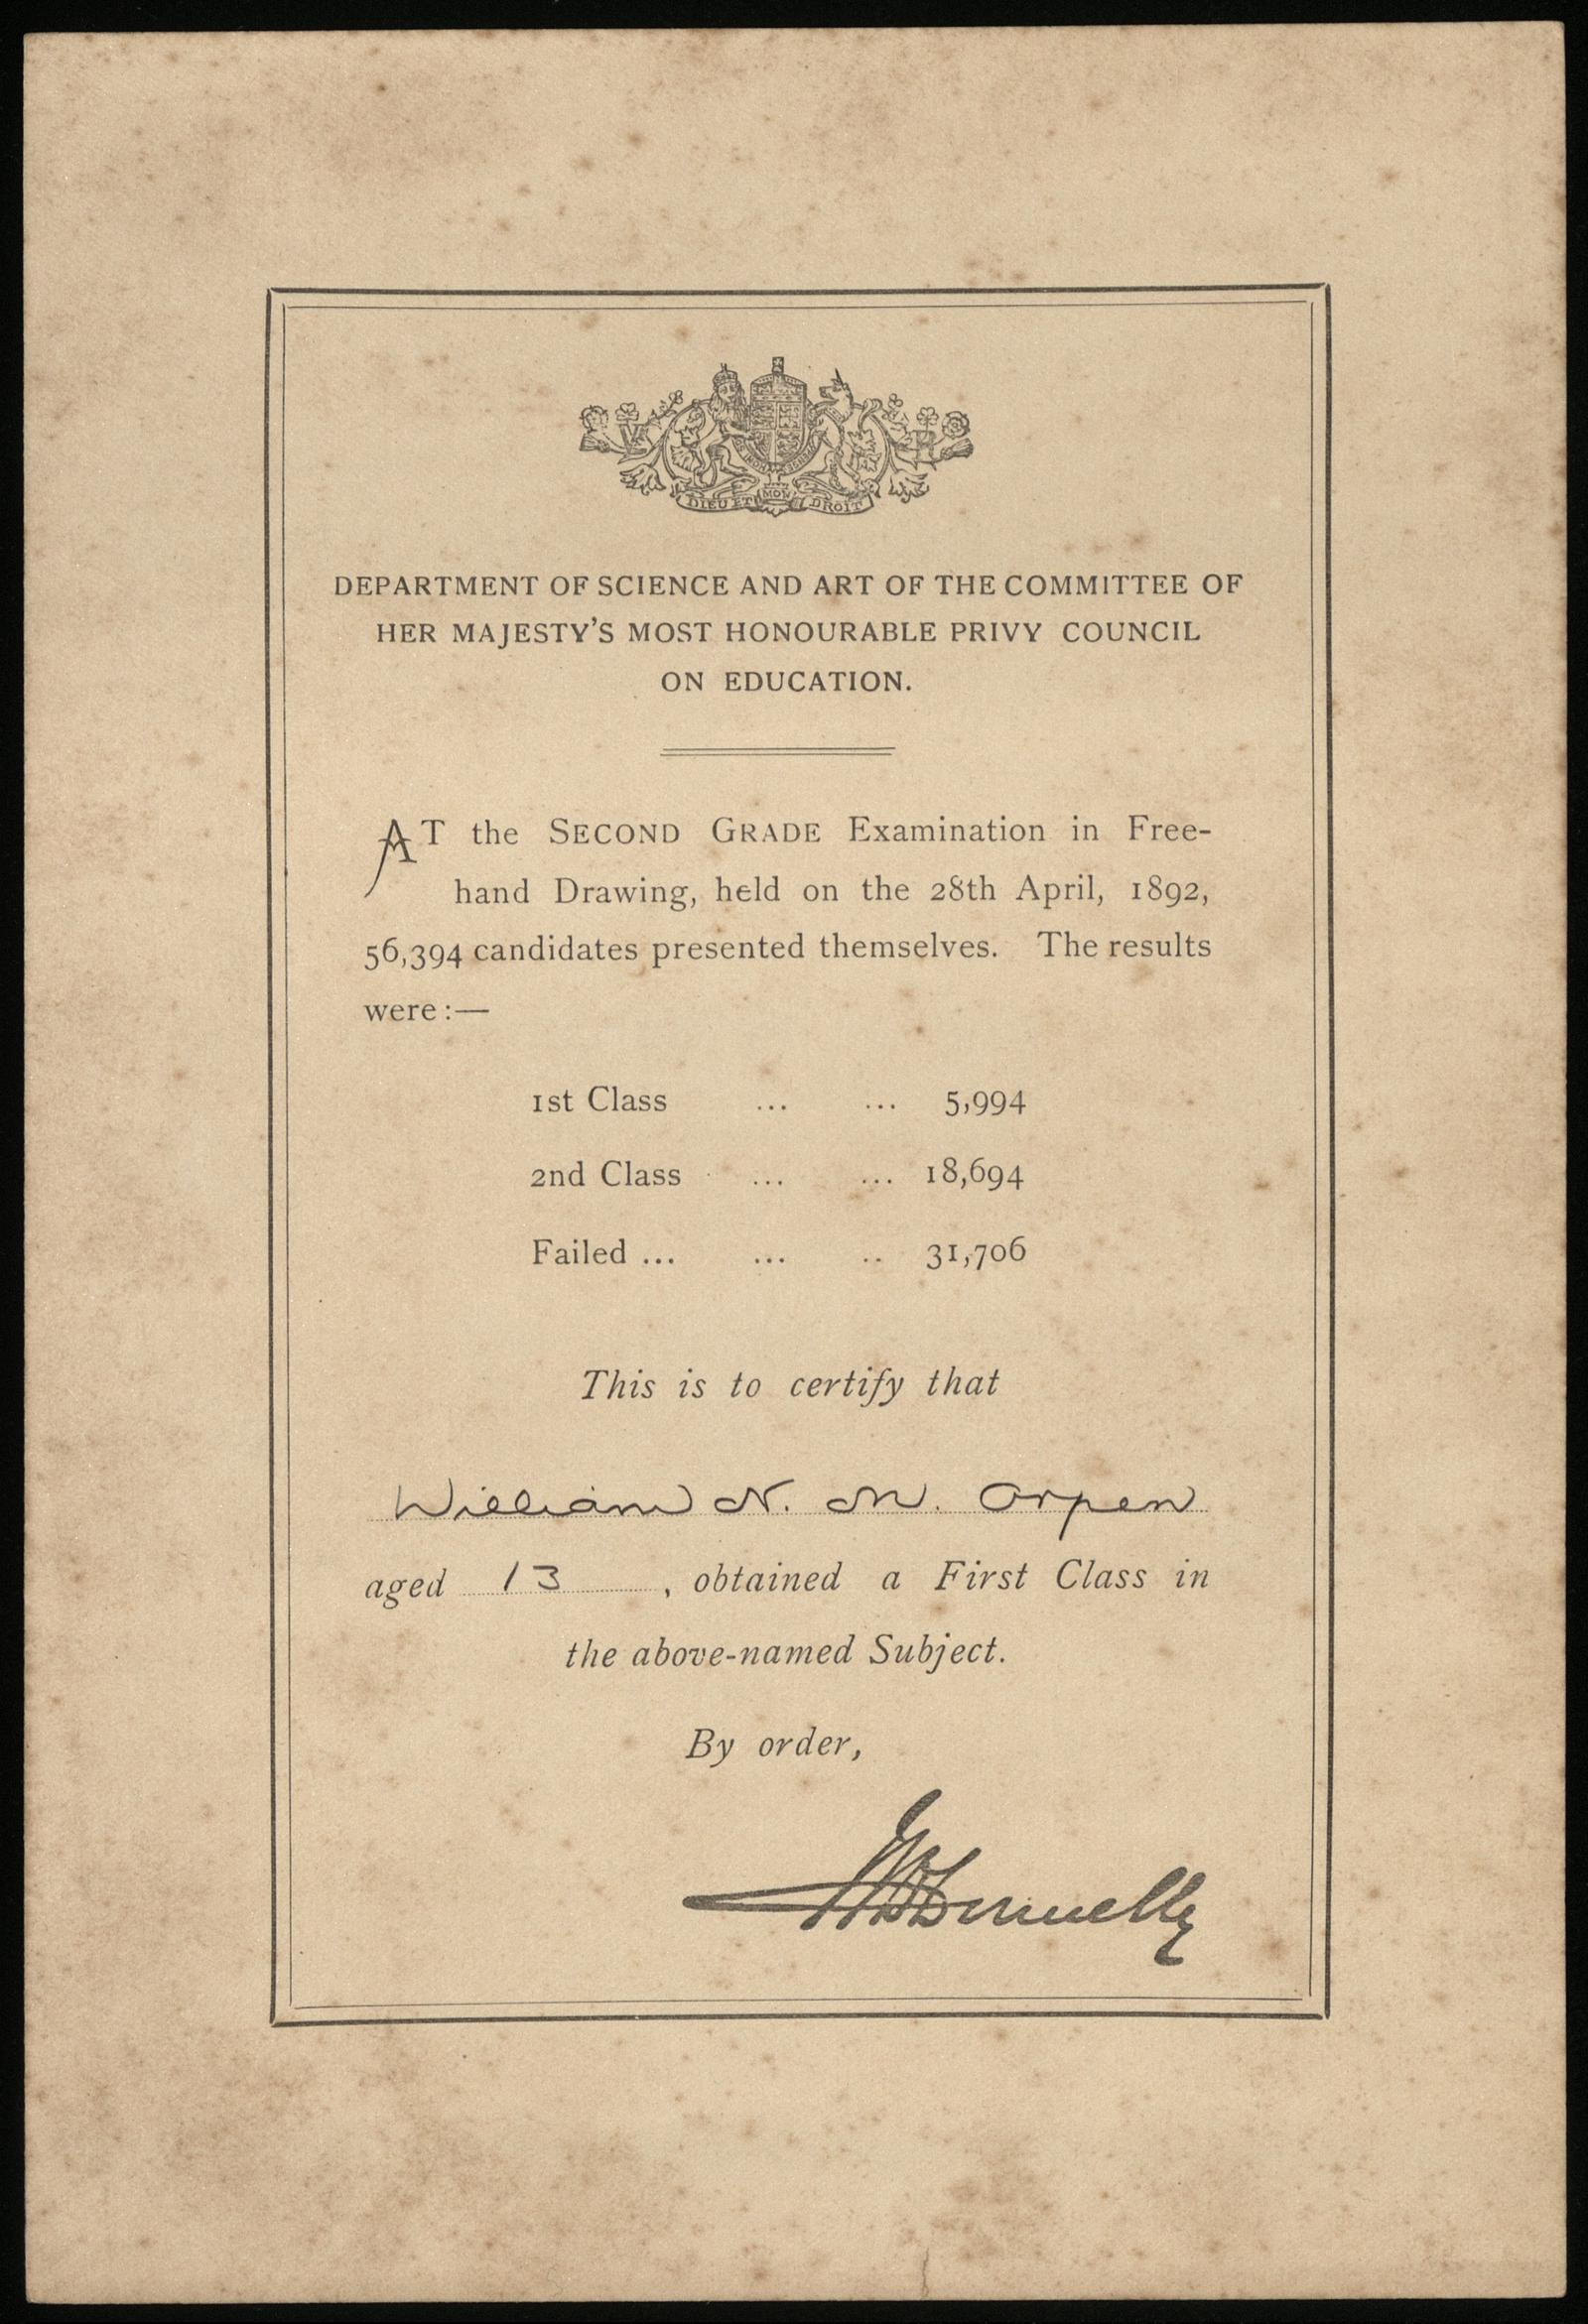 DIEU ET MON DROIT
DEPARTMENT OF SCIENCE AND ART OF THE COMMITTEE OF
HER MAJESTY'S MOST HONOURABLE PRIVY COUNCIL
ON EDUCATION.
AT the SECOND GRADE Examination in Free-
hand Drawing, held on the 28th April, 1892,
56,394 candidates presented themselves. The results
were:—
1st Class ... ... 5,994
2nd Class ... ... 18,694
Failed ... ... .. 31,706
This is to certify that
William N. M. Orpen
aged 13, obtained a First Class in
the above-named Subject.
By order,
Donnelly